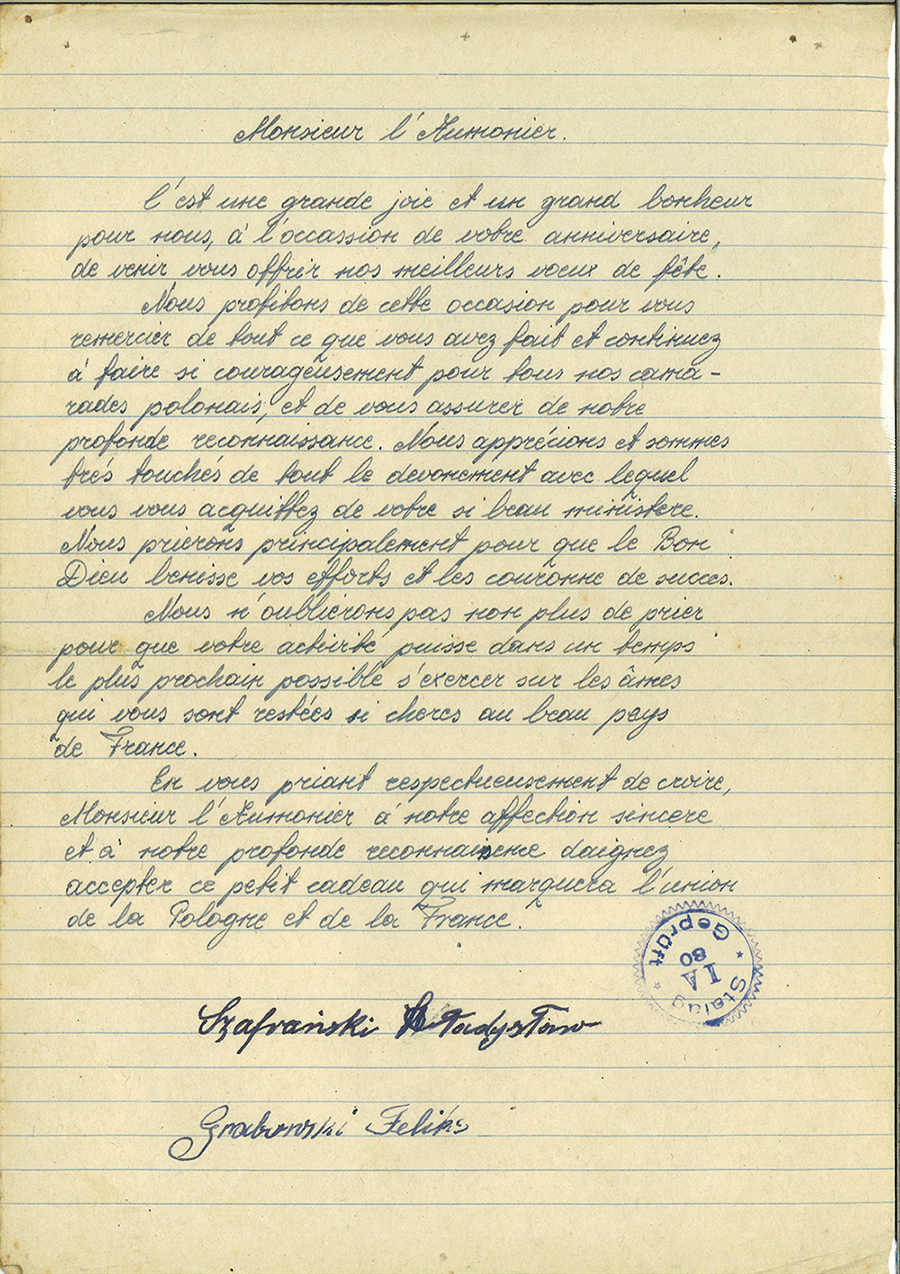 Monsieur l'Aumonier.
C'est une grande joie et un grand bonheur
pour nous, à l'occassion de votre anniversaire,
de venir vous offrir nos meilleurs voeux de fête.
Nous profitons de cette occasion pour vous
remercier de tout ce que vous avez fait et continuez
à faire si courageusement pour tous nos cama-
rades polonais, et de vous assurer de notre
profonde reconnaissance. Nous apprécions et sommes
très touchés de tout le devonement avec lequel
vous vous acquittez de votre si beau ministere.
Nous prierons principalement pour que le Bon
Dieu benisse vos efforts et les couronne de succes.
Nous n'oublierons pas non plus de prier
pour que votre activité puisse dans un temps
le plus prochain possible s'exercer sur les âmes
qui vous sont restées si cheres au beau pays
de France.
En vous priant respectueusement de croire,
Monsieur l'Aumonier à notre affection sincere
et à notre profonde reconnaisene daignez
accepter ce petit cadeau qui marquera l'union
de la Pologne et de la France.
Stalag IA
80
Geprüft
Szafrański Władysław
Grabowski Feliks